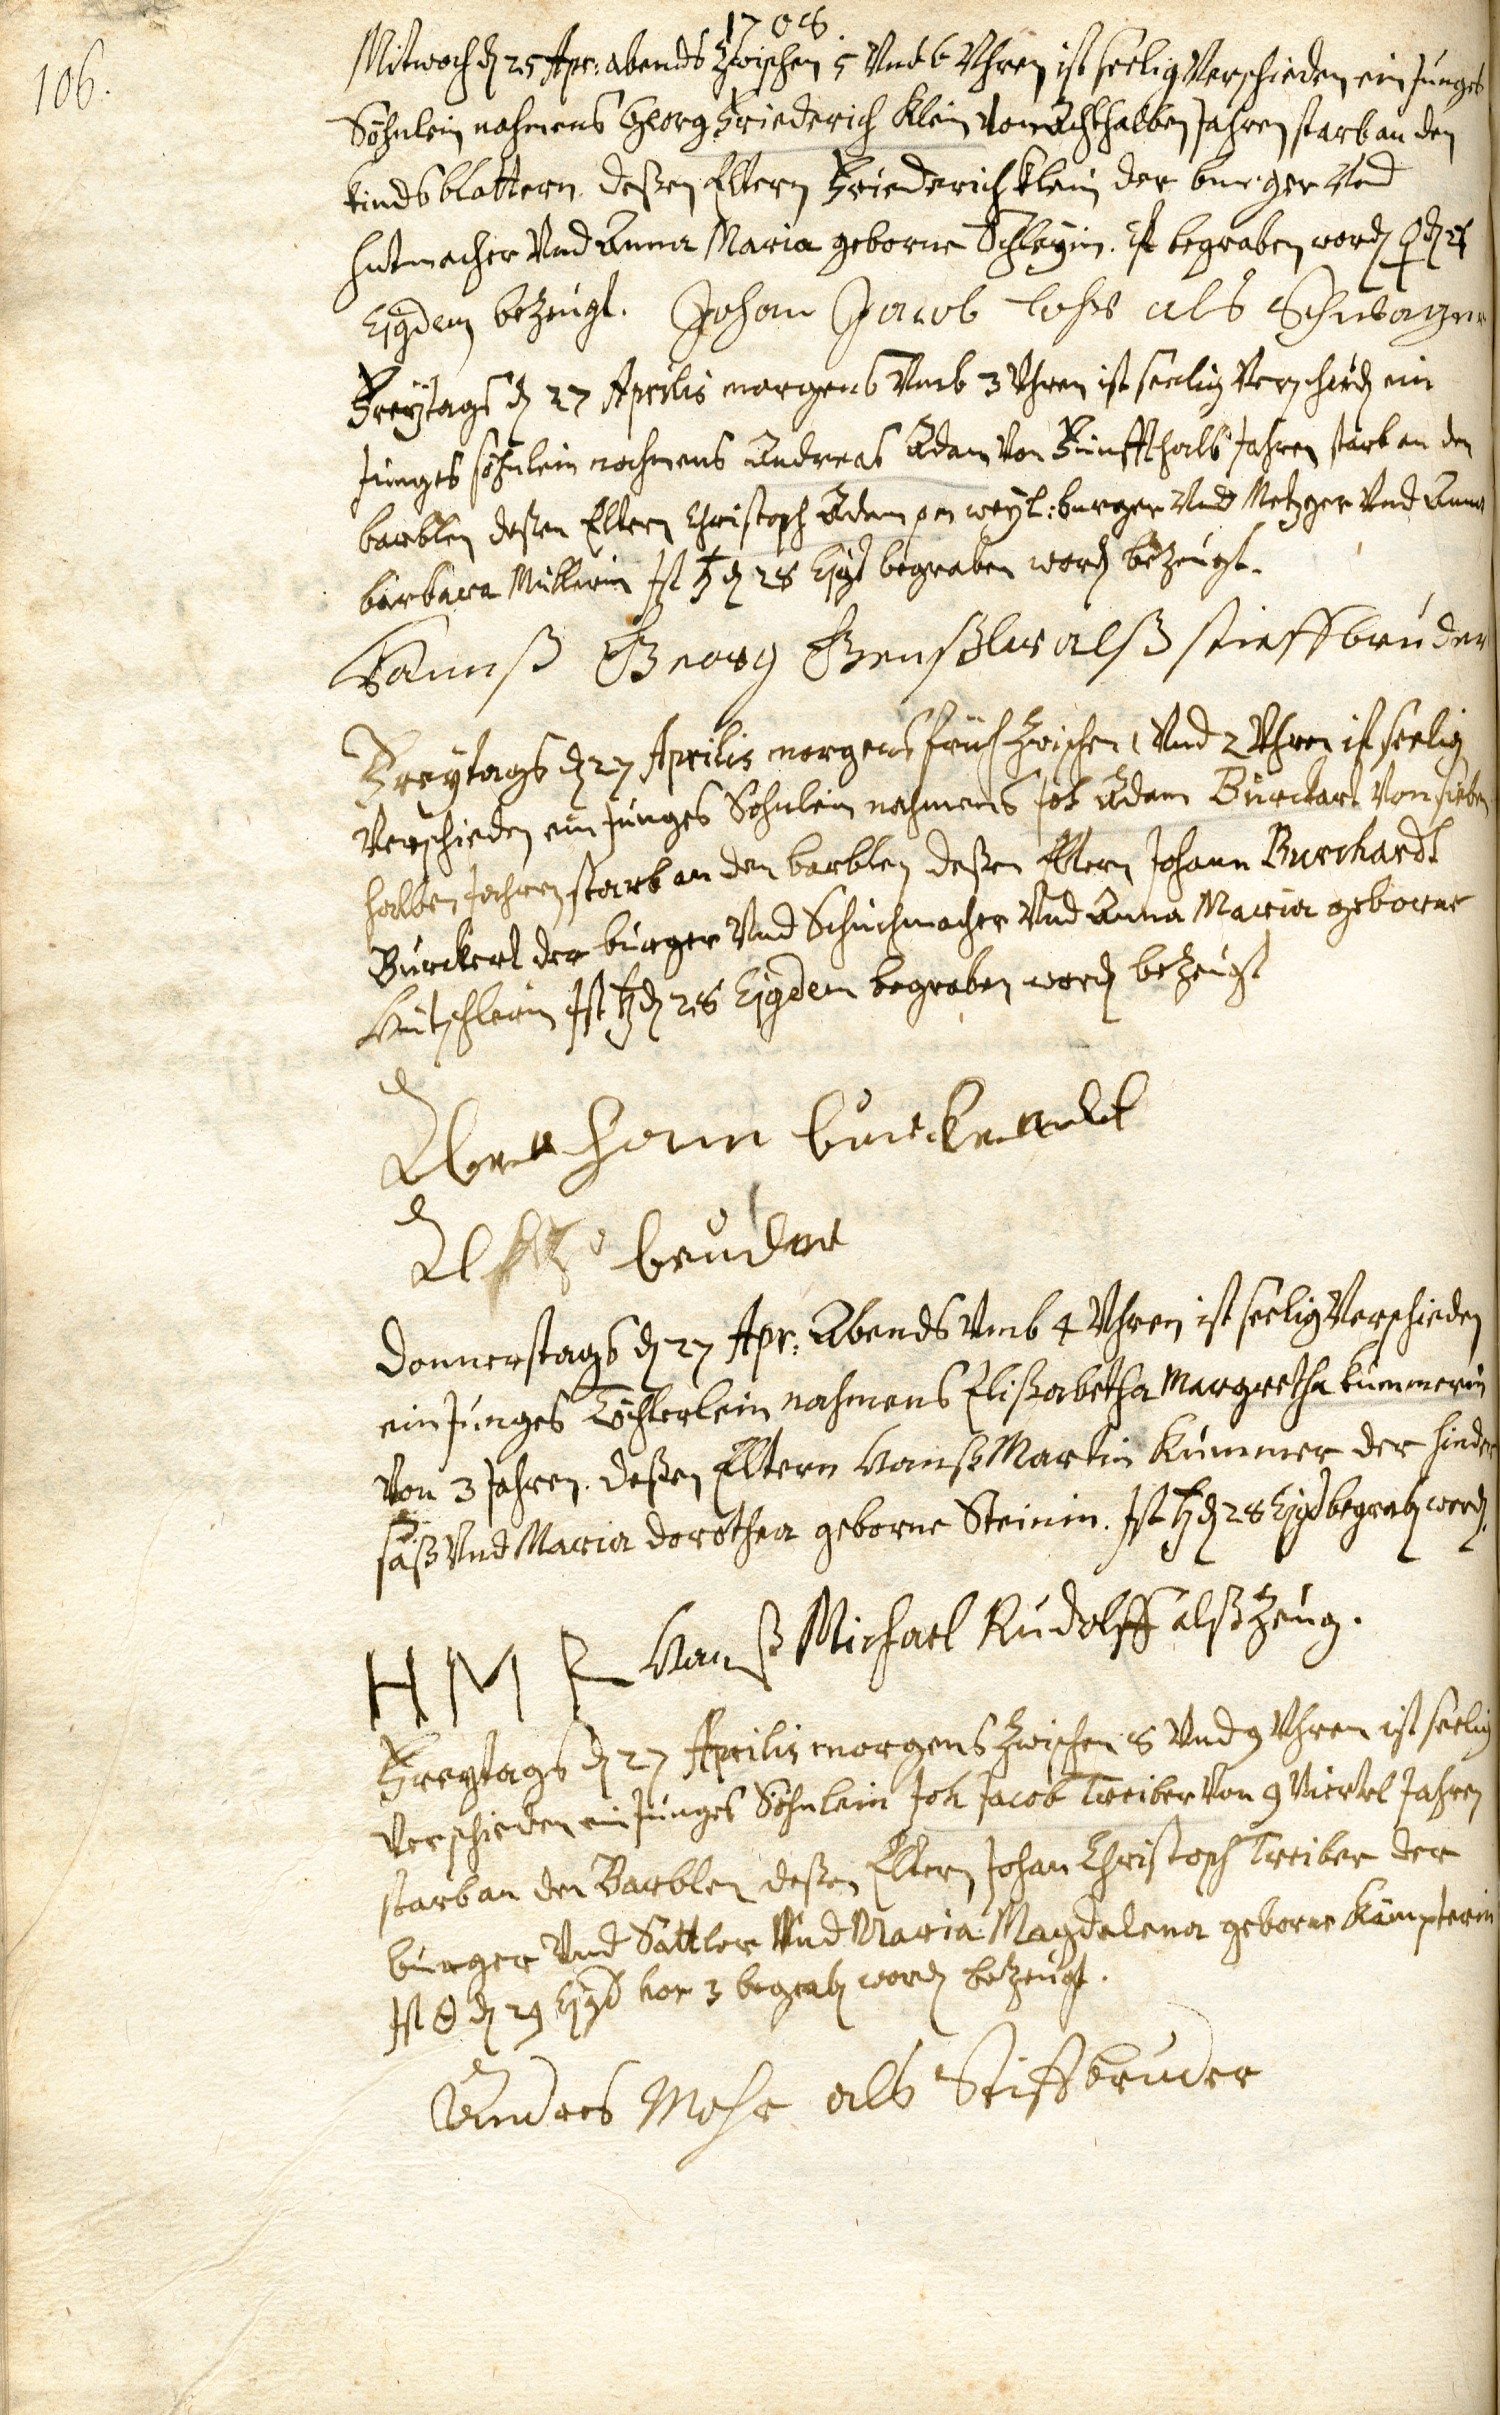 1708
106.
Mitwoch d 25 Apr: abends Zwischen 5 Und 6 Uhren ist seelig Verschieden ein Junges
Söhnlein nahmens Georg Friederich Klein von Achthalben Jahren starb an den
kindsblattern. deßen Eltern Friederich Klein der burger Und
hutmacher Und Anna Maria geborne Schleyin. Ist begraben word ♀ d
Ejgdem bezeugt. Johan Jacob als Schwager
Freÿtags d 27 Aprilis morgens Umb 3 Uhren ist seelig Verschied ein
Junges söhnlein nahmens Andreas Adam Von Fünffthalb Jahren starb an den
barblen deßen Eltern Christoph Adam weyl: burger Und Metzger Und Anna
barbara Müllerin Ist ♄ d 28 Ejgd begraben word bezeugt.
Hannß Georg alß stieffbruder
Freytags d 27 Aprilis morgens früh Zwischen 1 Und 2 Uhren ist seelig
Verschieden ein Junges Söhnlein nahmens Joh Adam Burckart Von sieben
halben Jahren starb an den barblen deßen Eltern Johann Burchardt
Burckert der burger Und Schuchmacher Und Anna Maria geborne
Hutschlerin Ist ♄ d 28 Ejgdem begraben word bezeugt
Abraham
Alß bruder
Donnerstags d 27 Apr: Abends Umb 4 Uhren ist seelig Verschieden
ein Junges Töchterlein nahmens Elisabetha Margretha Kummerin
Von 3 Jahren. deßen Eltern Hanß Martin Kummer der hinder
säß Und Maria Dorothea geborne Steinin. Ist ♄ d 28 Ejgd begrab word.
H M R Hanß Michael Rudolff alß Zeug.
Freytags d 27 Aprilis morgens Zwischen 8 Und 9 Uhren ist seelig
Verschieden ein Junges Söhnlein Joh Jacob Treiber Von 9 Viertel Jahren
starb an den Barblen deßen Eltern Johan Christoph Treiber der
burger Und Sattler Und Maria Magdalena geborne Kämpferin
Ist d 29 Ejgd hor 3 begrab word bezeugt.
Andres Mohr als Stiffbruder